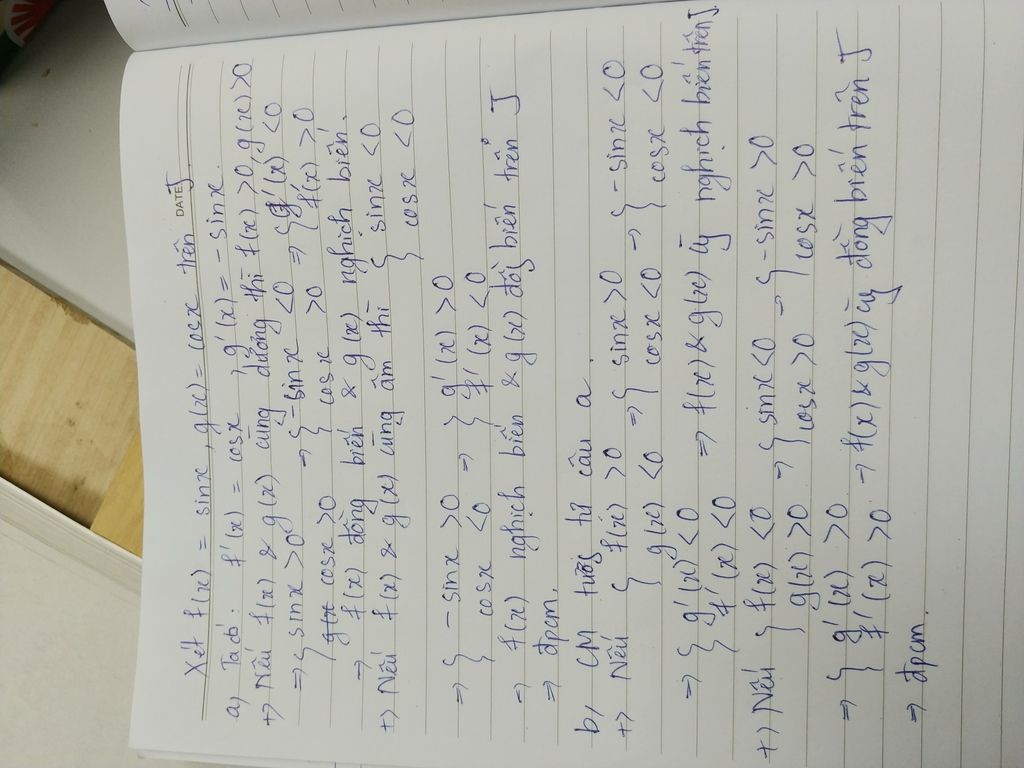 DATE
Xét f(x) = sinx, g(x) = cosx trên J
a) Ta có: f'(x) = cosx, g'(x) = -sinx.
+) Nếu f(x) & g(x) cùng dương thì f(x) >0, g(x) >0
=> { sinx >0 => { -sinx <0 => { g'(x) <0
cosx >0 cosx >0 f'(x) >0
=> f(x) đồng biến & g(x) nghịch biến.
+) Nếu f(x) & g(x) cùng âm thì { sinx <0
cosx <0
=> { -sinx >0 => { g'(x) >0
cosx <0 f'(x) <0
=> f(x) nghịch biến & g(x) đồng biến trên J
=> đpcm.
b, CM tương tự câu a
+) Nếu { f(x) >0 => { sinx >0 => { -sinx <0
g(x) <0 cosx <0 cosx <0
=> { g'(x) <0 => f(x) & g(x) cg nghịch biến trên J
f'(x) <0
+) Nếu { f(x) <0 => { sinx <0 => { -sinx >0
g(x) >0 cosx >0 cosx >0
=> { g'(x) >0
f'(x) >0 => f(x) & g(x) cg đồng biến trên J
=> đpcm.